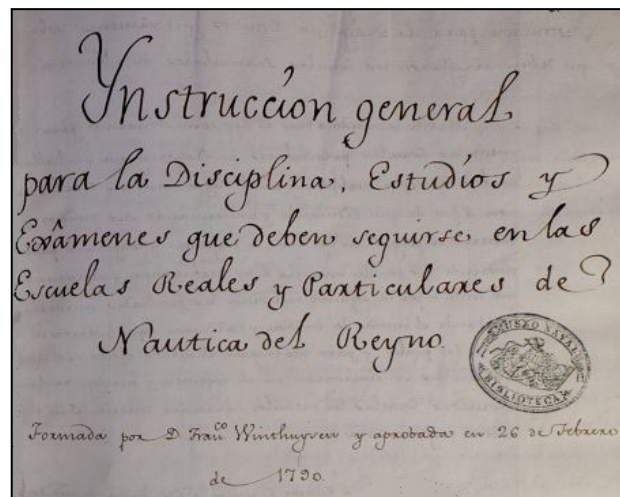 Ynstruccion general
para la Disciplina, Estudios y
Exâmenes que deben seguirse en las
Escuelas Reales y Particulares de
Nautica del Reyno.
MUSEO NAVAL
BIBLIOTECA
Formada por D. Franco. Winthuysen y aprobada en 26 de Febrero
de 1790.